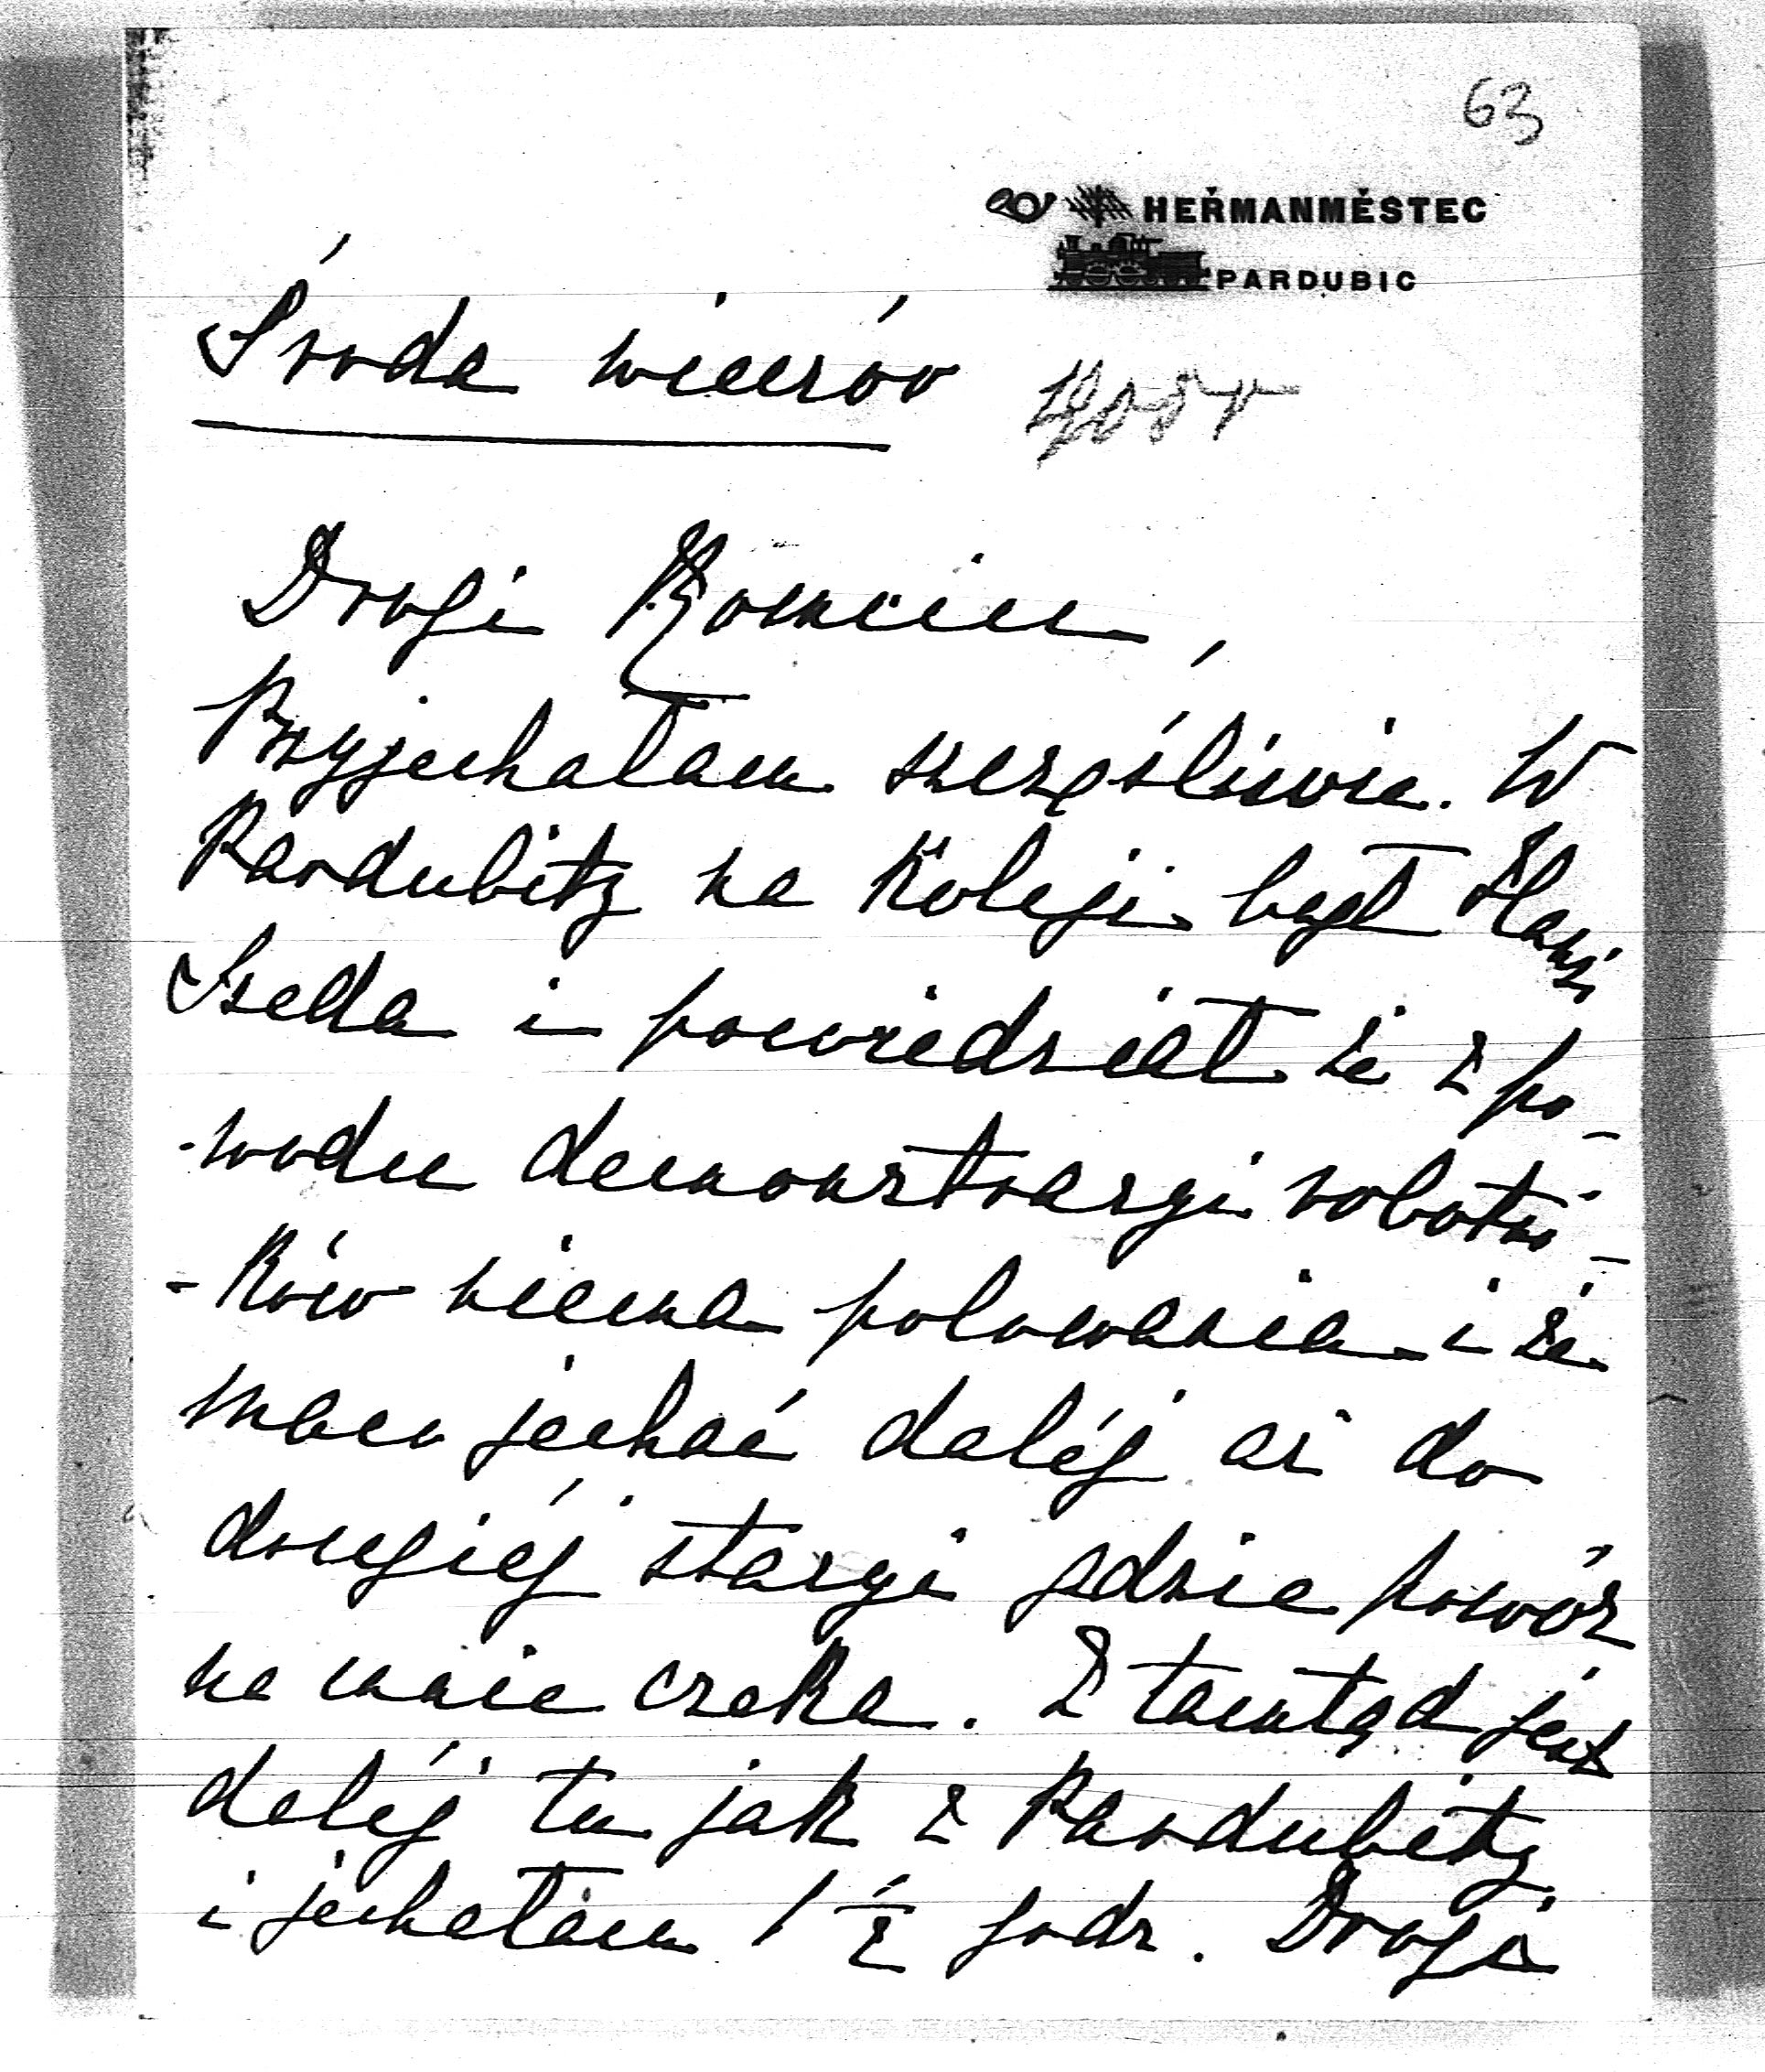 63
HEŘMANMĚSTEC
PARDUBIC
Środa wieczór
Drogi Romciu,
Przyjechałam szczęśliwie. W
Pardubitz na kolei był
i powiedział że z po-
-wodu demonstracyi robotni-
-ków niema polowania i że
mam jechać daléj aż do
drugiéj stacyi gdzie powóz
na mnie czeka. Z tamtąd jest
daléj tu jak z Pardubitz
i jechałam 1 1/2 godz. Drogi